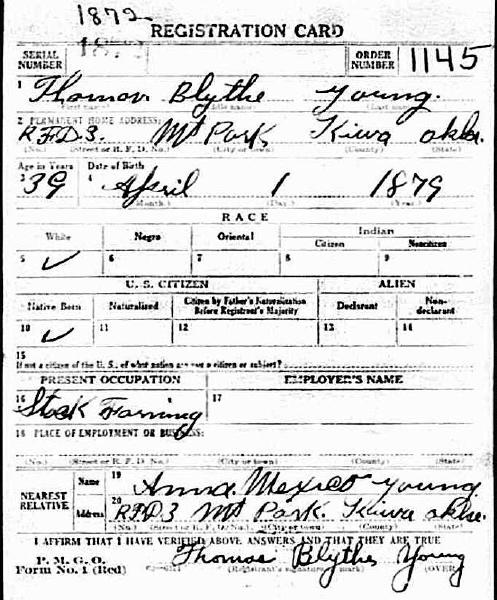 1872
REGISTRATION CARD
SERIAL NUMBER
ORDER NUMBER 1145
1 Thomas Blythe Young.
(First name) (Middle name) (Last name)
2 PERMANENT HOME ADDRESS:
R.F.D3. Mt Park Kiwa okla.
(No.) (Street or R. F. D. No.) (City or town) (County) (State)
Age in Years Date of Birth
3 39 4 April 1 1879
(Month.) (Day.) (Year.)
RACE
White Negro Oriental Indian
Citizen Noncitizen
5 ✓ 6 7 8 9
U. S. CITIZEN ALIEN
Native Born Naturalized Citizen by Father's Naturalization Before Registrant's Majority Declarant Non-declarant
10 ✓ 11 12 13 14
15
If not a citizen of the U. S., of what nation are you a citizen or subject?
PRESENT OCCUPATION EMPLOYER'S NAME
16 Stock Farming 17
18 PLACE OF EMPLOYMENT OR BUSINESS:
(No.) (Street or R. F. D. No.) (City or town) (County) (State)
NEAREST RELATIVE
Name 19 Anna Mexico young
Address 20 RFD3 Mt Park. Kiwa okla.
(No.) (Street or R. F. D. No.) (City or town) (County) (State)
I AFFIRM THAT I HAVE VERIFIED ABOVE ANSWERS AND THAT THEY ARE TRUE
P. M. G. O.
Form No. 1 (Red) Thomas Blythe Young
(Registrant's signature or mark) (OVER)